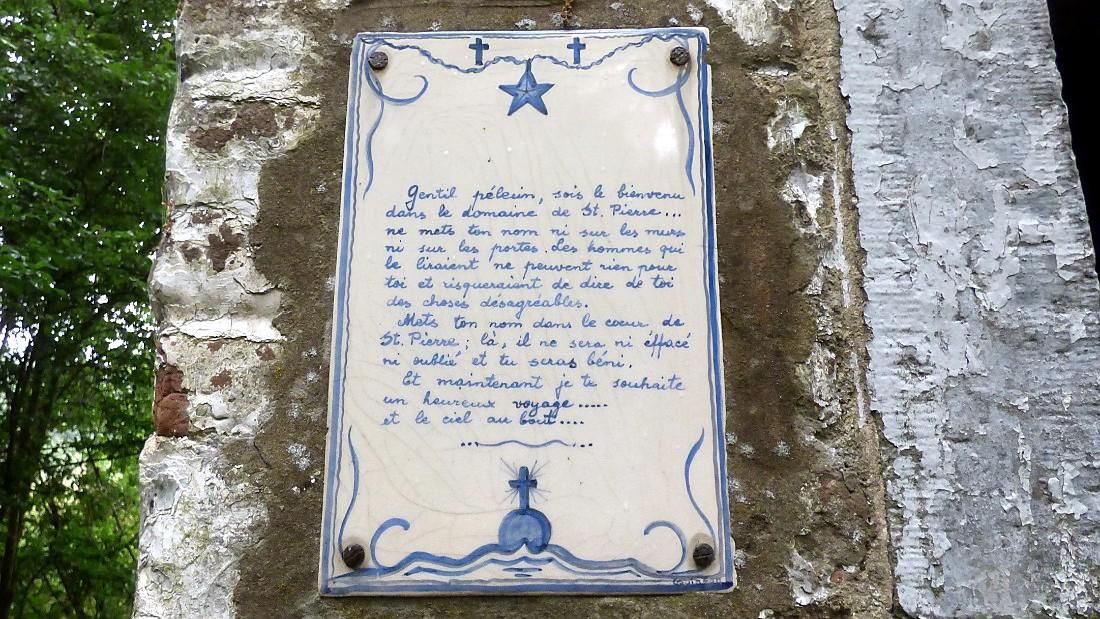 Gentil pélerin, sois le bienvenu
dans le domaine de St. Pierre...
ne mets ton nom ni sur les murs
ni sur les portes. Les hommes qui
le liraient ne peuvent rien pour
toi et risqueraient de dire de toi
des choses désagréables.
Mets ton nom dans le coeur de
St. Pierre ; là, il ne sera ni éffacé
ni oublié et tu seras béni.
Et maintenant je te souhaite
un heureux voyage .....
et le ciel au bout ....